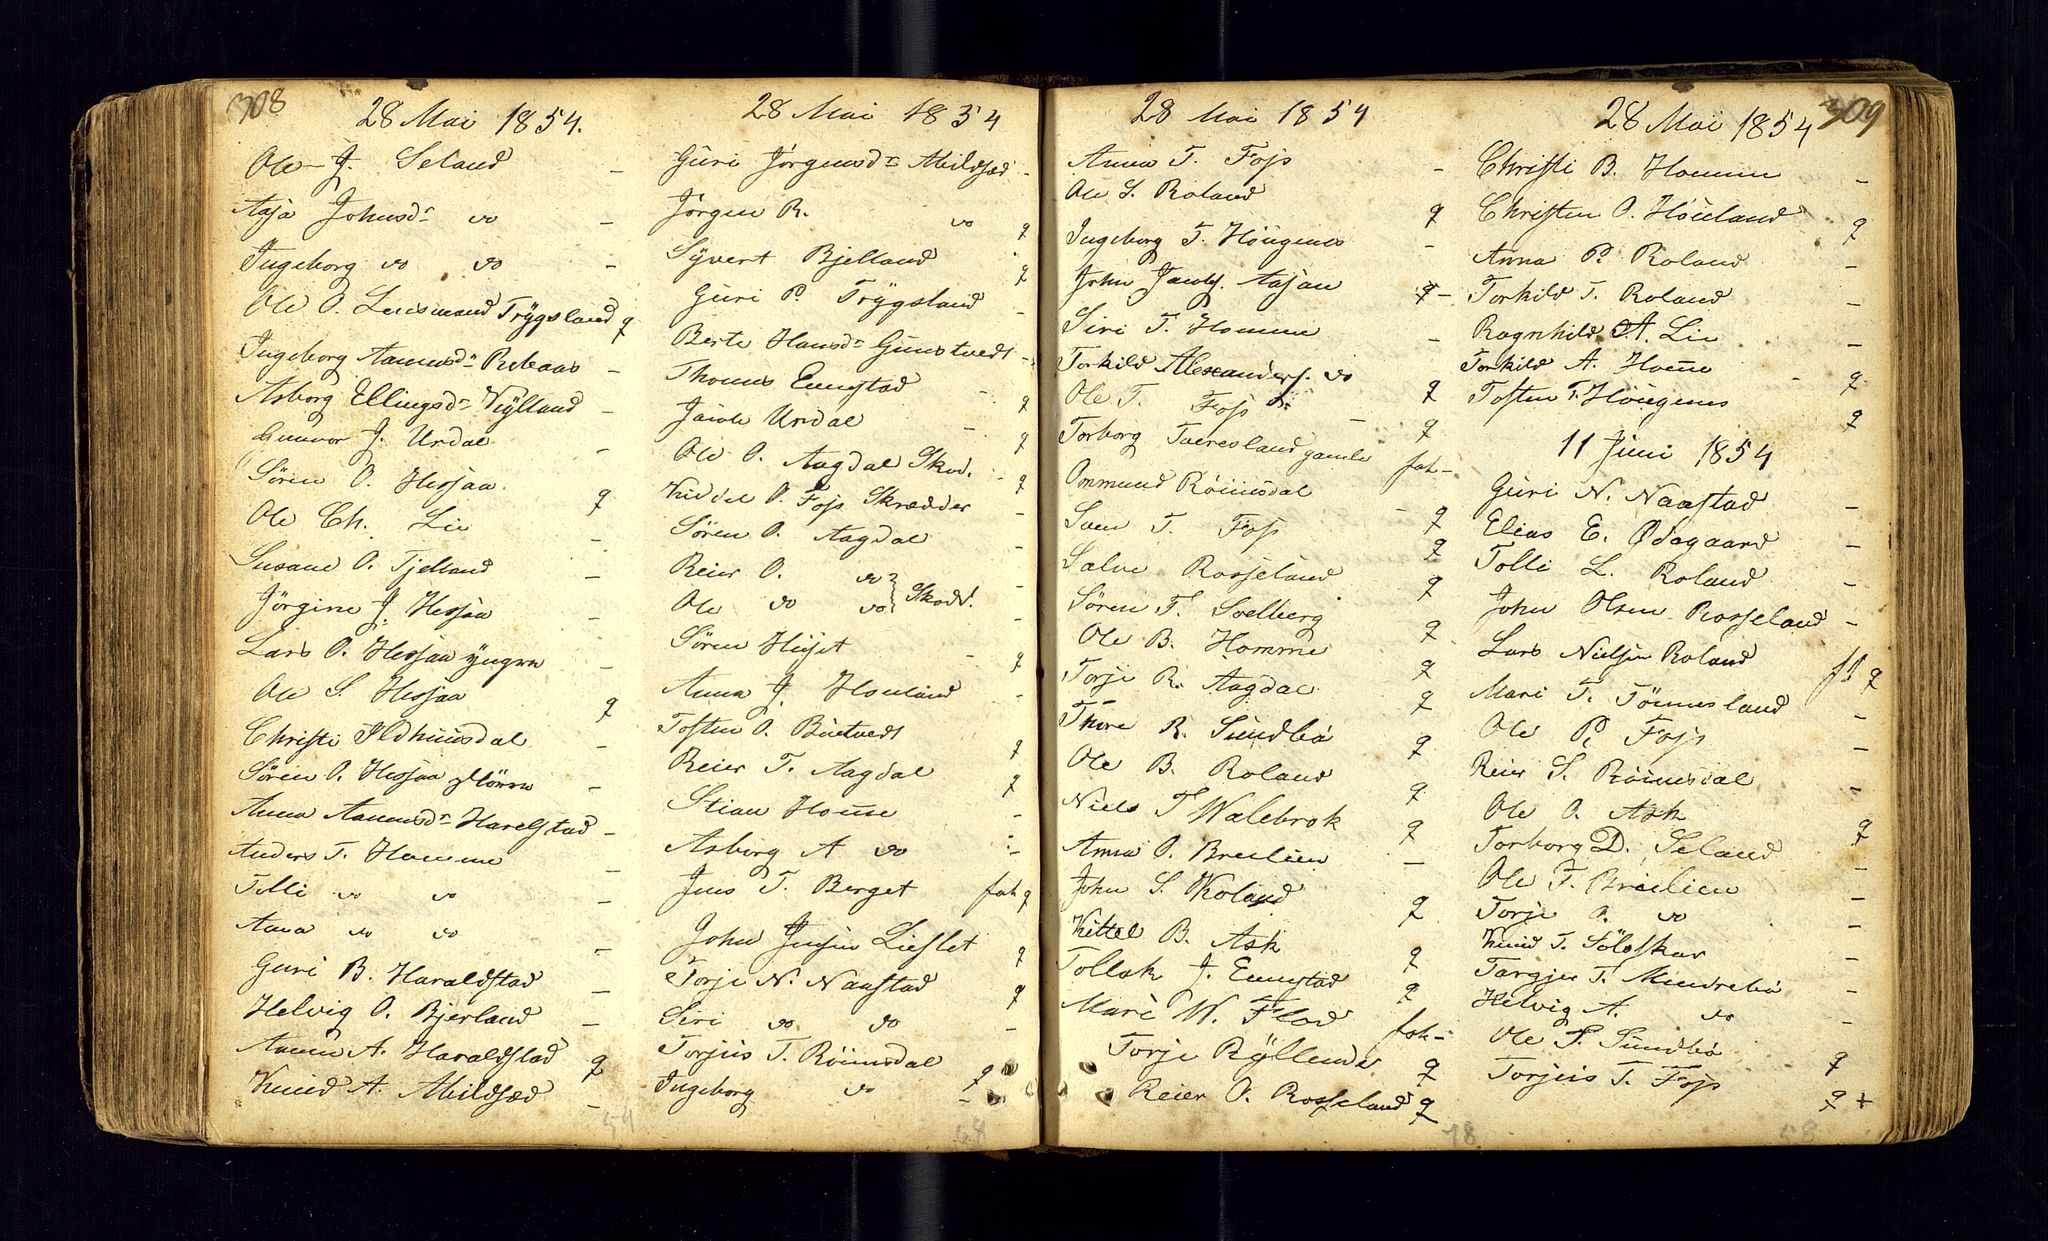 308
28 Mai 1854.
Ole J. Seland -
Aasa Johnsd. do -
Ingeborg do do -
Ole O. Lensmand Trÿgsland q
Ingeborg Aanensd. -
Asborg Ellingsd. Viÿlland -
Gunvor J. Undal -
Sören O. Hessaa q
Ole Ch. Lie -
Susane O. Tjelland -
Jörgine J. Hessaa -
Lars O. Hessaa yngre -
Ole S. Hessaa q
Christi Ildhuusdal -
Sören O. Hessaa -
Anna Aanensd. Harelstad -
Anders T. Homme -
Tolli do do -
Anna do do -
Guri B. Haraldstad -
Helvig O. Bjerland -
Aanen A. Haraldstad q
Knud A. Mildsed -
54
28 Mai 1854
Guri Jörgensd. Mildsed -
Jörgen R. do q
Syvert Bjelland q
Guri P. Trÿgsland -
Berte Hansd. Gunstvedt -
Thomas Eungstad - q
Jacob Undal - q
Ole O. Aagdal Skod. q
Kiddel O. Foss Skrædder -
Sören O. Aagdal -
Reier O. do -
Ole do do Skodd. -
Sören Huset - q
Anna J. Houland -
Tosten O. Buetvedt q
Reier T. Aagdal q
Stian Homme -
Asborg A do -
Jens T. Berget fah q
John Jensen Lieslet q
Torje N. Naastad q
Siri do do -
Torjuis T. Röinsdal q
Ingeborg do -
68
28 Mai 1854
Anna T. Foss -
Ole S. Roland q
Ingeborg T. Höugenes -
John Jacobs. Aasan q -
Siri T. Homme -
Torkild Alexanders. do q
Ole T. Foss - q
Torborg Tveresland gamle fah -
Ommund Röinsdal - q
Sven T. Foss q
Salve Rosseland q
Sören T. Solberg q
Ole B. Homme q
Torje R. Aagdal q
Thore R. Sundbö q
Ole B. Roland q
Niels T Walebrok q
Anna O. Breilien -
John S. Roland q
Kittel B. Ask q
Tollak J. Eungstad q
Mari W. Flod fah -
Torje Rÿllende q
Reier O. Rosseland q
78
309
28 Mai 1854
Christi B. Homme -
Christen O. Höuland q
Anna P. Roland -
Torkild T. Roland -
Ragnhild A. Lie -
Torkild A. Home - q
Tosten T. Höugenes q
11 Juni 1854
Guri N. Naastad -
Elias E. Ødegaard -
Tolli L. Roland -
John Olsen Rosseland -
Lars Nielsen Roland q
Mari T. Tönnesland -
Ole P. Foss -
Reier S. Röinsdal -
Ole O. Ask q
Torborg D. Seland -
Ole T. Breilien -
Torje O. do -
Knud T. Sölöskar -
Targjer T. Mundrebö -
Helvig A. do -
Ole T. Sundbö q
Torjuis T. Foss q +
58